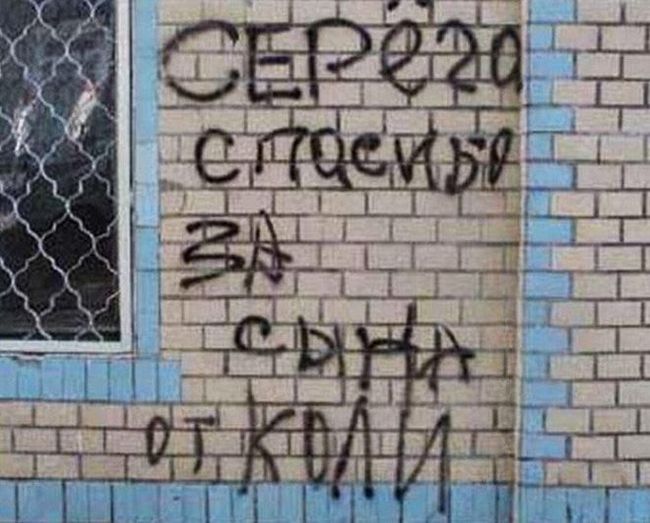 СЕРЁга
спасибо
ЗА
сынА
от КОЛИ